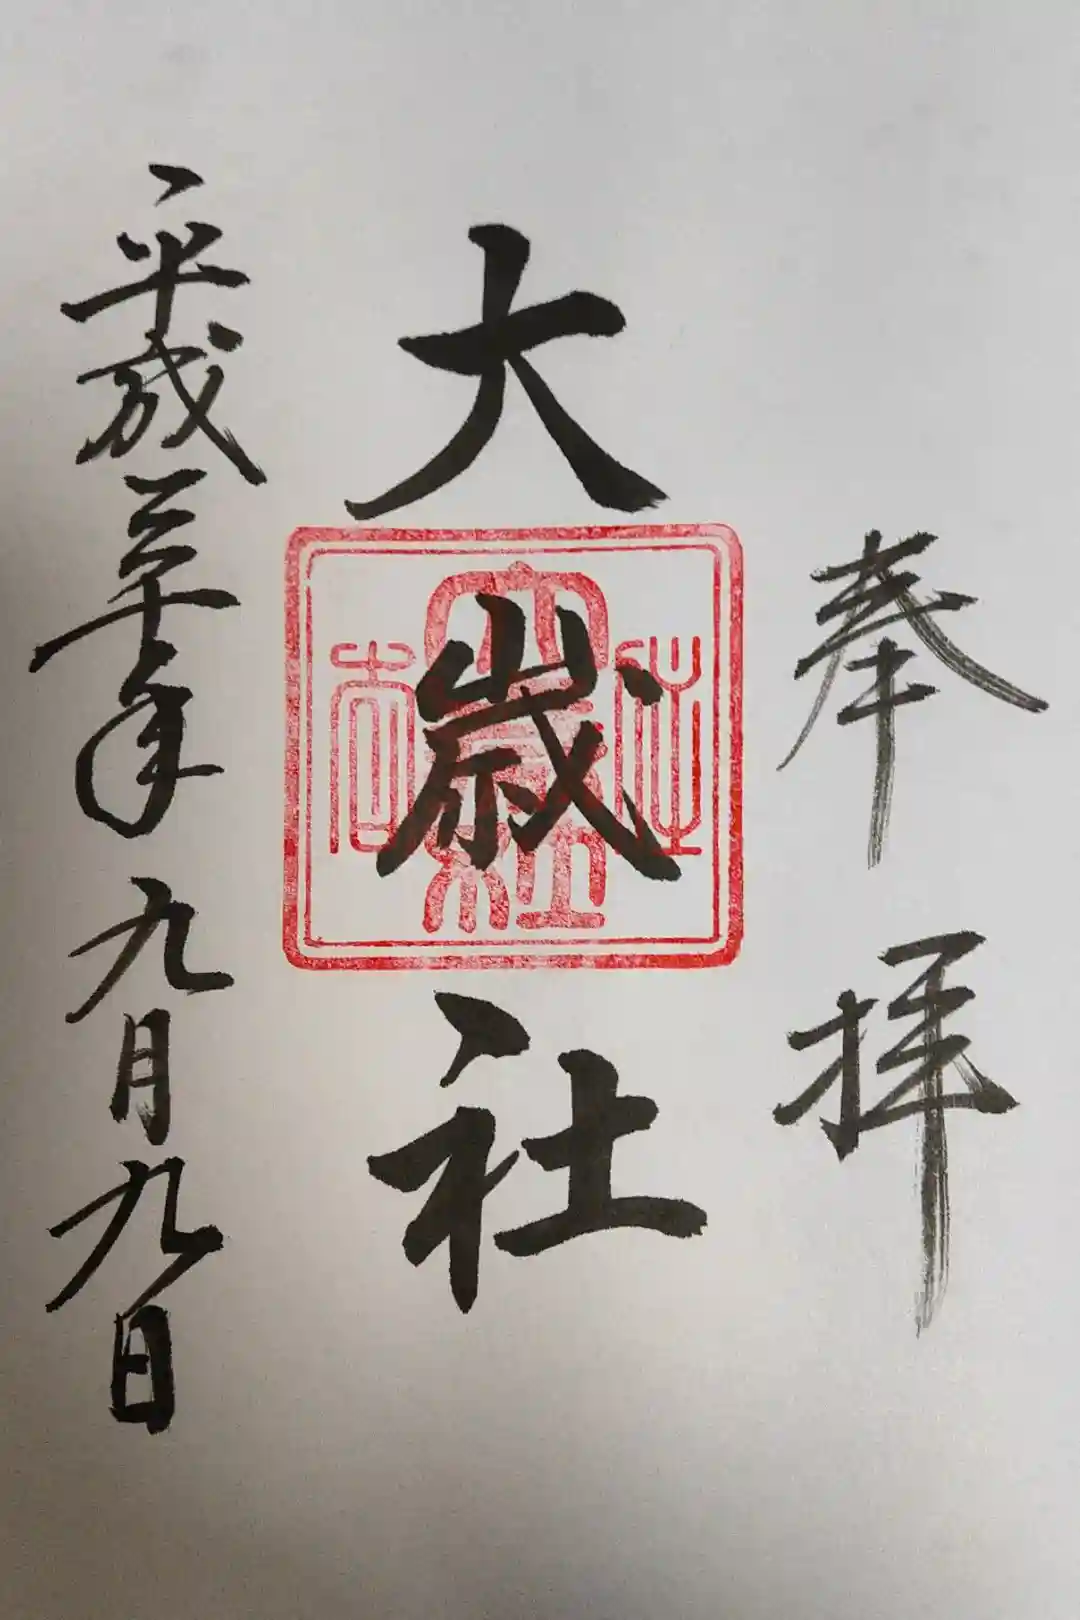 奉拝
大歳社
平成三十年九月九日